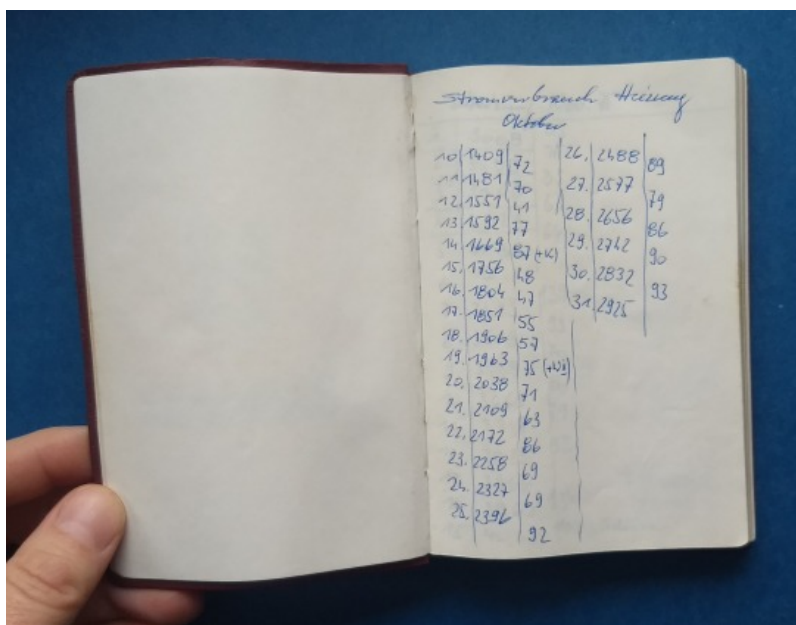 Stromverbrauch Heizung
Oktober
10. 1409
72
11. 1481
70
12. 1551
41
13. 1592
77
14. 1669
87
15. 1756
48
16. 1804
47
17. 1851
55
18. 1906
57
19. 1963
75
20. 2038
71
21. 2109
63
22. 2172
86
23. 2258
69
24. 2327
69
25. 2396
92
26. 2488
89
27. 2577
79
28. 2656
86
29. 2742
90
30. 2832
93
31. 2925